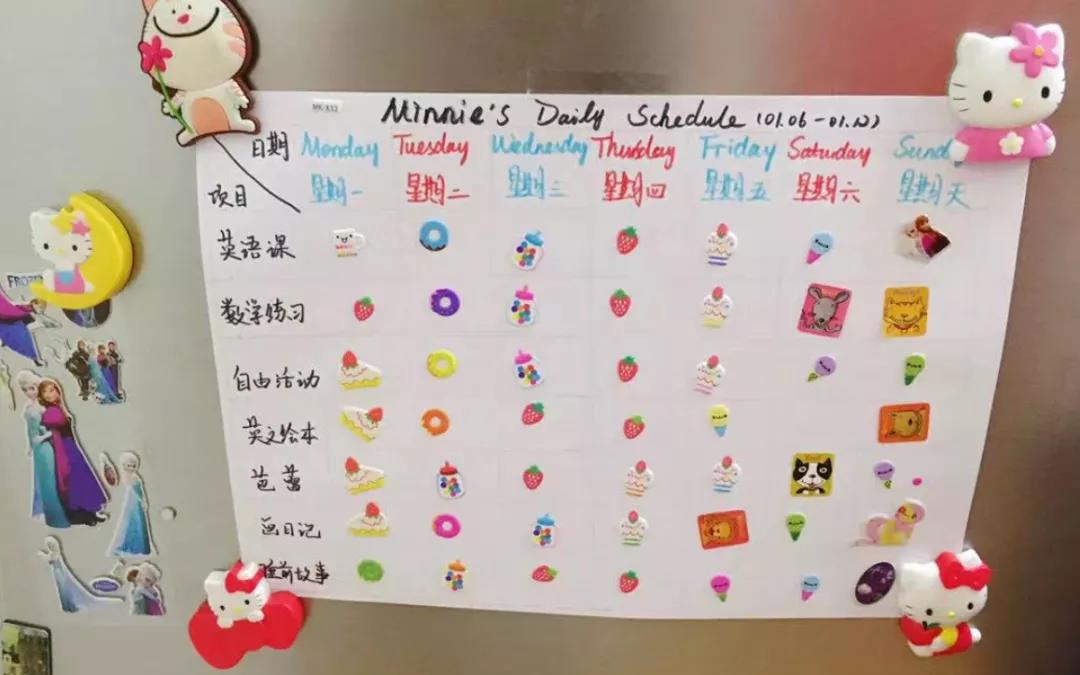 MK-X33
Minnie's Daily Schedule (01.06-01.12)
日期 Monday Tuesday Wednesday Thursday Friday Saturday Sund
项目 星期一 星期二 星期三 星期四 星期五 星期六 星期天
英语课
数学练习
自由活动
英文绘本
芭蕾
画日记
睡前故事
FROZEN